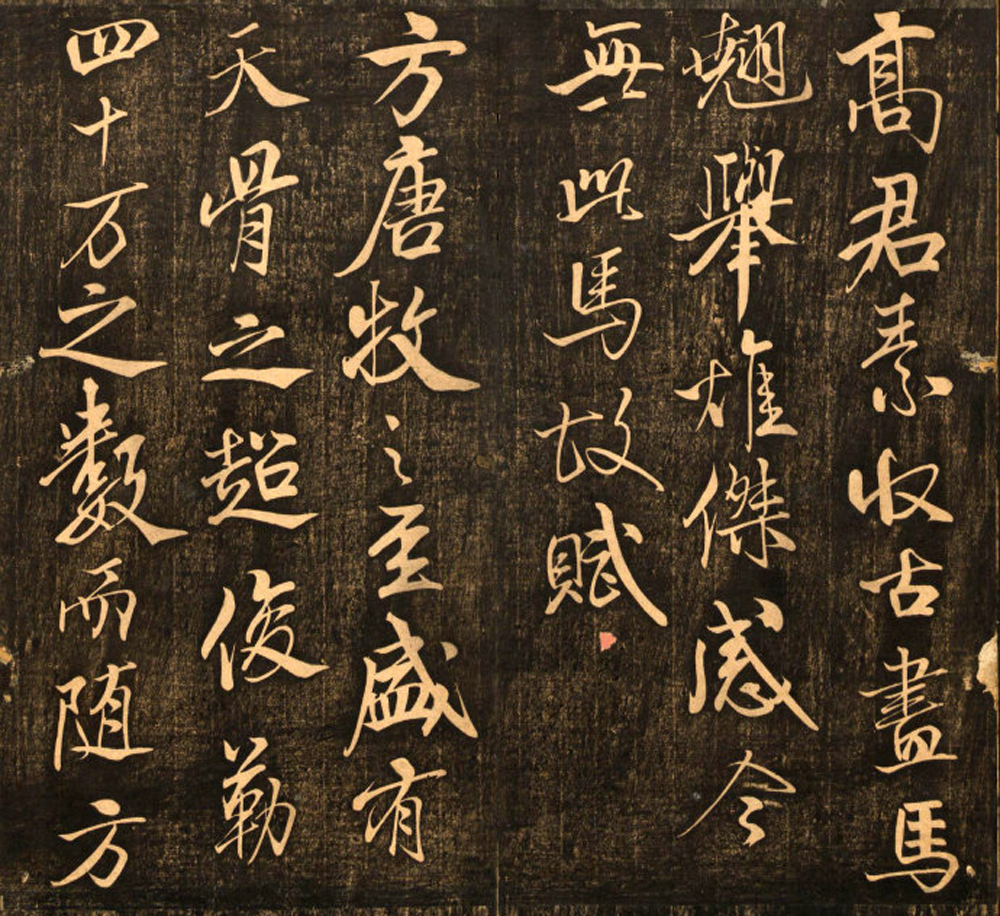 髙君素收古畫馬
翹舉雄傑感今
無此馬故賦
方唐牧之至盛有
天骨之超俊勒
四十万之數而随方